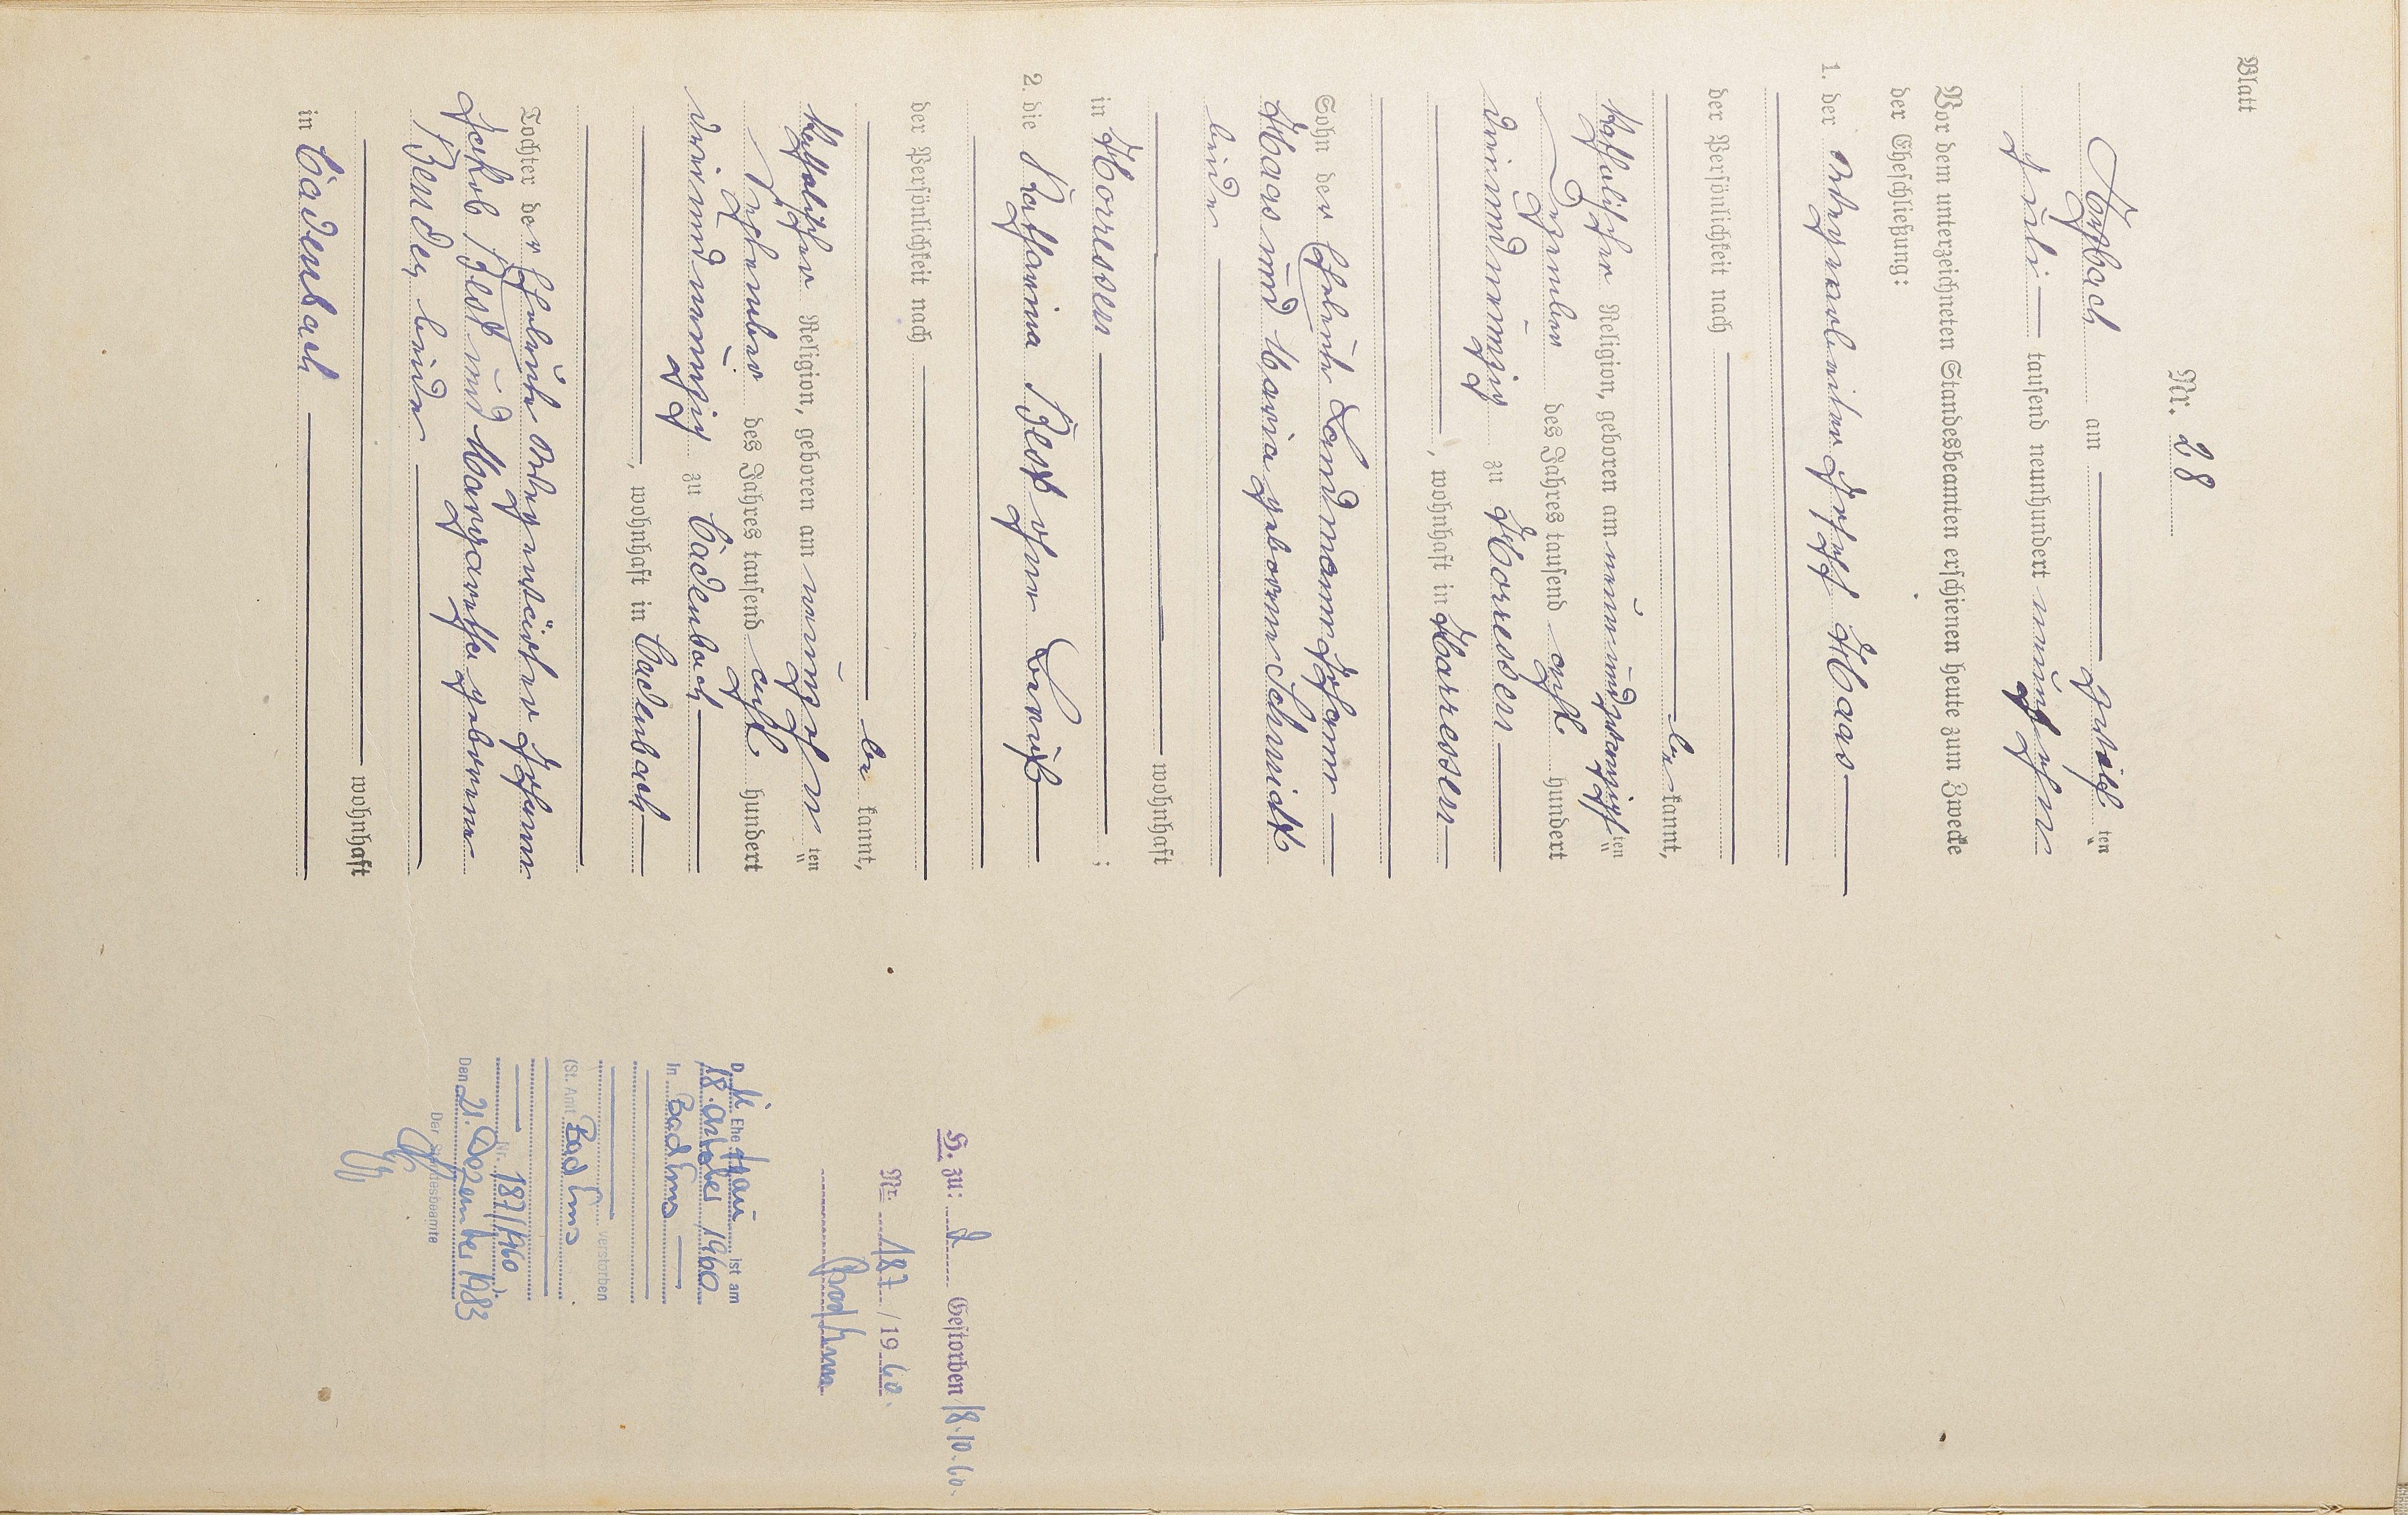 Blatt
Nr. 28
Arzbach am — zwölf ten
Juli — tausend neunhundert neunzehn
Vor dem unterzeichneten Standesbeamten erschienen heute zum Zwecke
der Eheschließung:
1. der Joseph Haas
der Persönlichkeit nach
be kannt,
katholischer Religion, geboren am neunundzwanzigsten
Dezember des Jahres tausend acht hundert
neunzig zu Horressen
, wohnhaft in Horressen
Sohn der Eheleute Landmann Johann
Haas und Maria geborene Schmidt
beide
wohnhaft
in Horressen ;
2. die Katharina Best ohne Beruf
der Persönlichkeit nach
be kannt,
katholischer Religion, geboren am neunzehn ten
September des Jahres tausend acht hundert
neunzig zu Cadenbach
, wohnhaft in Cadenbach
Tochter der Eheleute Johann
Jakob Best und Margarethe geborene
Bender, beide
wohnhaft
in Cadenbach
H. zu: Gestorben 18.10.60.
Nr. 187 / 19 60.
Bad Ems
Die Ehefrau ist am
18. Oktober 1960
in Bad Ems
verstorben
(St. Amt Bad Ems
Nr. 187/1960 ).
Den 21. Dezember 1983
Der Standesbeamte